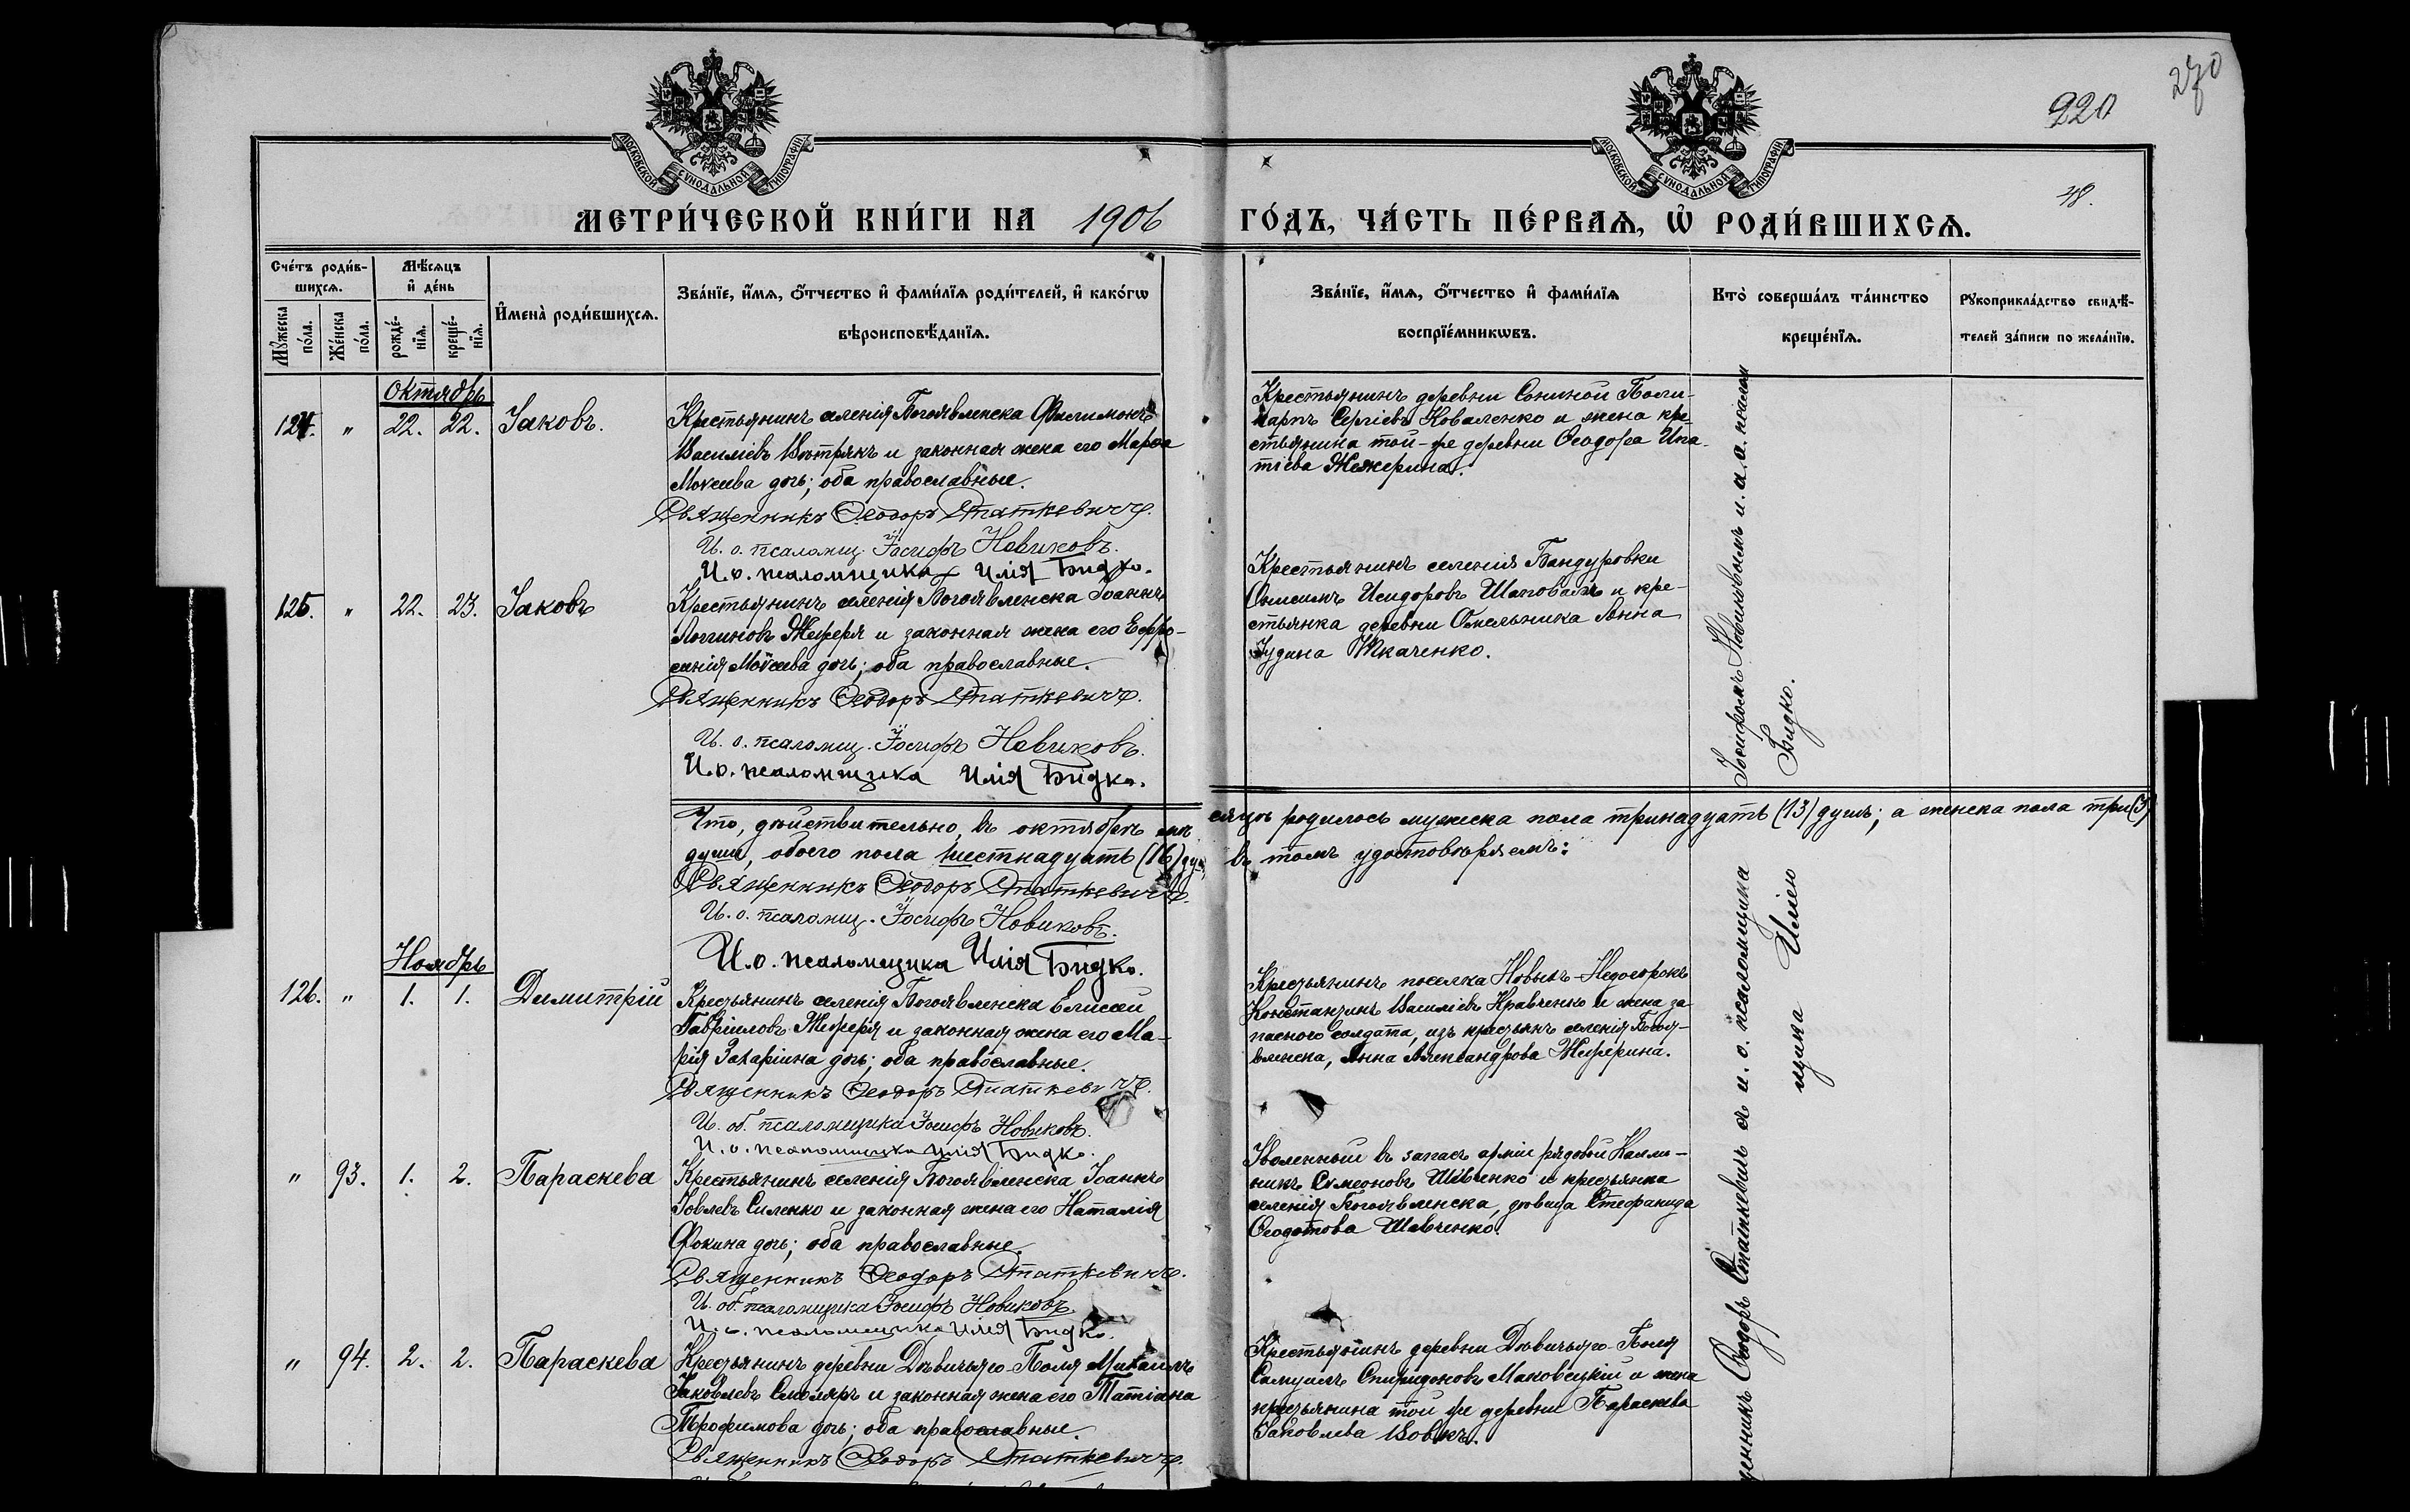 270
220
48.
МОСКОВСКОЙ СУНОДАЛЬНОЙ ТИПОГРАФІИ
МОСКОВСКОЙ СУНОДАЛЬНОЙ ТИПОГРАФІИ
МЕТРИ́ЧЕСКОЙ КНИ́ГИ НА 1906 ГО́ДЪ, ЧА́СТЬ ПЕ́РВАѦ, Ѡ҆ РОДИ́ВШИХСѦ.
Сче́тъ роди́в-
шихсѧ.
Мꙋ́жеска по́ла.
Же́нска по́ла.
Мѣ́сѧцъ
и҆ де́нь
рожде́-
нїѧ.
креще́-
нїѧ.
И҆мена̀ роди́вшихсѧ.
Зва́нїе, и҆́мѧ, ѻ҆́тчество и҆ фами́лїѧ роди́телей, и҆ како́гѡ
вѣроисповѣ́данїѧ.
Зва́нїе, и҆́мѧ, ѻ҆́тчество и҆ фами́лїѧ
воспрїе́мникѡвъ.
Кто̀ соверша́лъ та́инство
креще́нїѧ.
Рꙋкоприкла́дство свидѣ́-
телей за́писи по жела́нїю.
Октябрь
124. " 22. 22. Іаковъ.
Крестьянинъ селенія Богоявленска Филимонъ
Василіевъ Вѣтрякъ и законная жена его Марѳа
Моѵсеева дочь; оба православные.
Священникъ Ѳеодоръ Статкевичъ.
И. о. псаломщ. Іосифъ Новиковъ.
И. о. псаломщика Илія Бидко.
Крестьянинъ деревни Сониной Поли-
карпъ Сергіевъ Коваленко и жена кре-
стьянина той-же деревни Ѳеодора Ипа-
тіева Межерина.
125. " 22. 23. Іаковъ
Крестьянинъ селенія Богоявленска Іоаннъ
Логгиновъ Жеферя и законная жена его Евфро-
синія Моѵсеева дочь; оба православные.
Священникъ Ѳеодоръ Статкевичъ.
И. о. псаломщ. Іосифъ Новиковъ.
И. о. псаломщика Илія Бидко.
Крестьянинъ селенія Бандуровки
Онисимъ Исидоровъ Шаповалъ и кре-
стьянка деревни Омельника Анна
Іудина Ткаченко.
Что, дѣйствительно, въ октябрѣ мѣ-
сяцѣ родилось мужеска пола тринадцать (13) душъ; а женска пола три (3)
души, обоего пола шестнадцать (16) душ
въ томъ удостовѣряемъ:
Священникъ Ѳеодоръ Статкевичъ.
И. о. псаломщ. Іосифъ Новиковъ.
И. о. псаломщика Илія Бидко.
Ноябрь
126. " 1. 1. Димитрій
Крестьянинъ селенія Богоявленска Елисей
Гавріиловъ Жеферя и законная жена его Ма-
рія Захаріина дочь; оба православные.
Священникъ Ѳеодоръ Статкевичъ.
И. об. псаломщика Іосифъ Новиковъ.
И. о. псаломщика Илія Бидко.
Крестьянинъ поселка Новыхъ-Недогорокъ
Константинъ Василіевъ Кравченко и жена за-
паснаго солдата, изъ крестьянъ селенія Богоя-
вленска, Анна Александрова Жеферина.
" 93. 1. 2. Параскева
Крестьянинъ селенія Богоявленска Іоаннъ
Іовлевъ Силенко и законная жена его Наталія
Фокина дочь; оба православные.
Священникъ Ѳеодоръ Статкевичъ.
И. об. псаломщика Іосифъ Новиковъ.
И. о. псаломщика Илія Бидко.
Уволенный въ запасъ арміи рядовой Калли-
никъ Симеоновъ Шевченко и крестьянка
селенія Богоявленска, дѣвица Стефанида
Ѳеодотова Шевченко.
" 94. 2. 2. Параскева
Крестьянинъ деревни Дѣвичьяго-Поля Михаилъ
Іаковлевъ Смоляръ и законная жена его Татіана
Трофимова дочь; оба православные.
Священникъ Ѳеодоръ Статкевичъ.
Крестьянинъ деревни Дѣвичьяго-Поля
Самуилъ Спиридоновъ Маковецкій и жена
крестьянина той же деревни Параскева
Іаковлева Вовкъ.
Ѳеодоръ Статкевичъ съ и. о. псаломщика Іосифомъ Новиковымъ и и. о. псалом
щика Иліею Бидко.